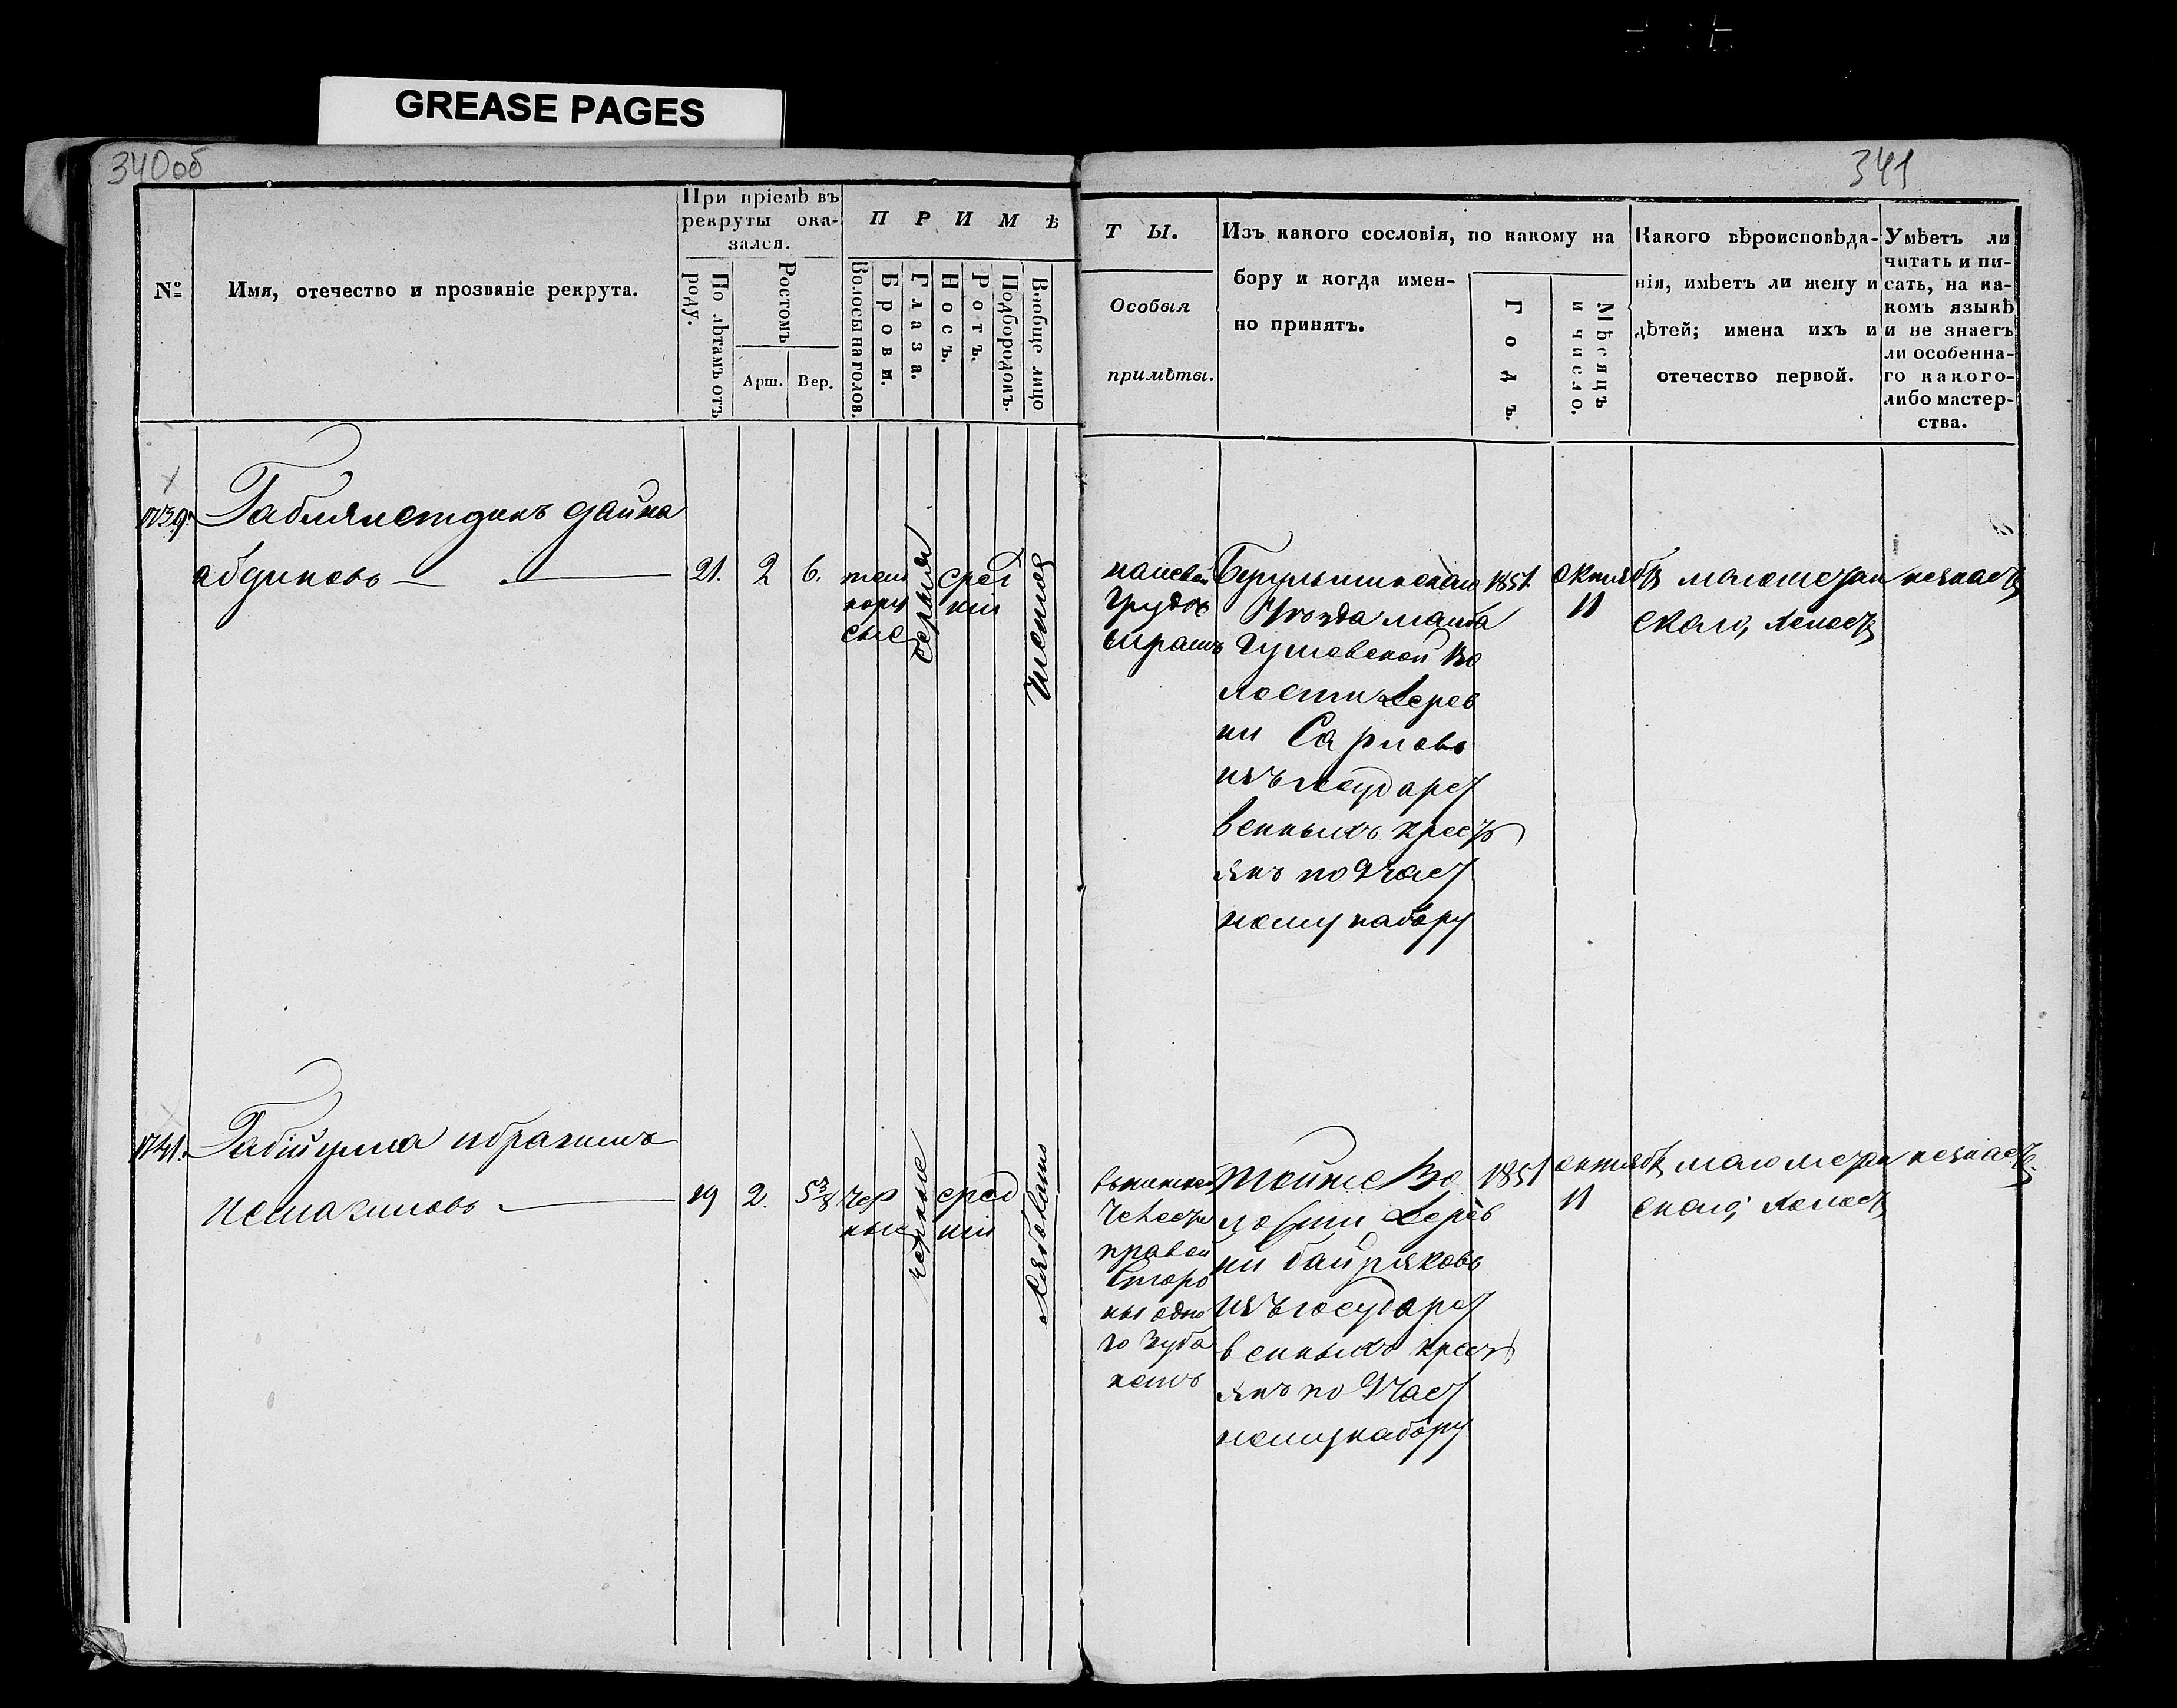 GREASE PAGES
340об
341
№
Имя, отечество и прозваніе рекрута.
При пріемѣ въ
рекруты ока-
зался.
По лѣтамъ отъ
роду.
Ростомъ
Арш. Вер.
П Р И М Ѣ
Волосы на голов.
Брови.
Глаза.
Носъ.
Ротъ.
Подбородокъ.
Вообще лицо
Т Ы.
Особыя
примѣты.
Изъ какого сословія, по какому на
бору и когда имен-
но принятъ.
Годъ.
Мѣсяцъ
и число.
Какого вѣроисповѣда-
нія, имѣетъ ли жену и
дѣтей; имена ихъ и
отечество первой.
Умѣетъ ли
читать и пи-
сать, на ка-
комъ языкѣ
и не знаетъ
ли особенна-
го какого-
либо мастер-
ства.
1739.
абдиновъ
21. 2 6.
темно
русые
серыя
сред
ніи
Чистое
на левой
груди
шрамъ
Бугульминскаго
Уѣзда
Во
лости Дерев
ни
изъ государст
венныхъ крестъ
янъ по Част
ному набору
1851
октябр
11
магометан
скаго, холост
незнает
1741.
Габйулла ибрагимъ
19 2. 5 3/8
чер
ные
черные
сред
ніи
Рябовато
правой
Сторо
ны одно
го Зуба
нетъ
Тойже Во
лости Дерев
ни байряково
изъ государст
венныхъ крестъ
янъ по Част
ному набору
1851
октябр
11
магометан
скаго, холост
незнает